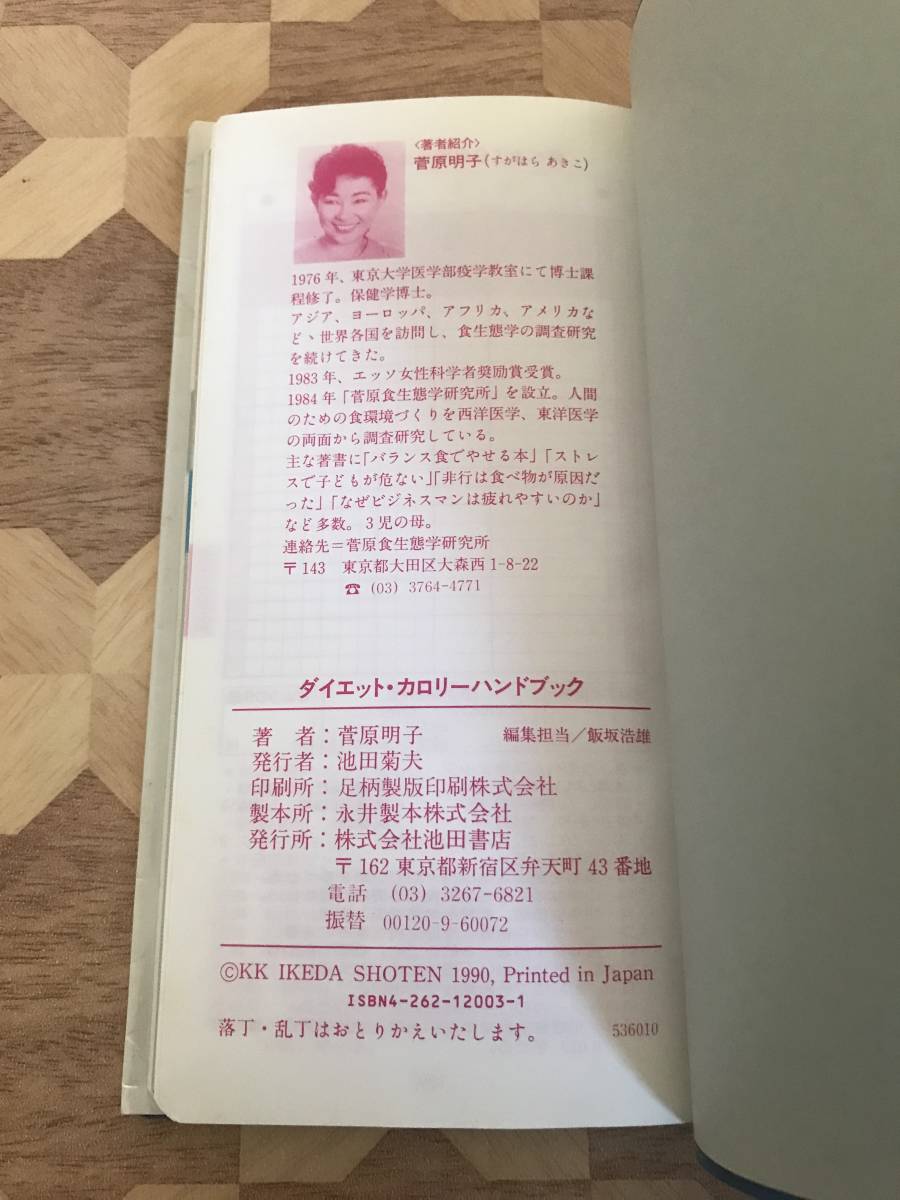 〈著者紹介〉
菅原明子(すがはら あきこ)
1976年、東京大学医学部疫学教室にて博士課
程修了。保健学博士。
アジア、ヨーロッパ、アフリカ、アメリカな
ど、世界各国を訪問し、食生態学の調査研究
を続けてきた。
1983年、エッソ女性科学者奨励賞受賞。
1984年「菅原食生態学研究所」を設立。人間
のための食環境づくりを西洋医学、東洋医学
の両面から調査研究している。
主な著書に「バランス食でやせる本」「ストレ
スで子どもが危ない」「非行は食べ物が原因だ
った」「なぜビジネスマンは疲れやすいのか」
など多数。3児の母。
連絡先＝菅原食生態学研究所
〒143 東京都大田区大森西1-8-22
☎ (03) 3764-4771
ダイエット・カロリーハンドブック
著 者：菅原明子 編集担当／飯坂浩雄
発行者：池田菊夫
印刷所：足柄製版印刷株式会社
製本所：永井製本株式会社
発行所：株式会社池田書店
〒162 東京都新宿区弁天町43番地
電話 (03) 3267-6821
振替 00120-9-60072
©KK IKEDA SHOTEN 1990, Printed in Japan
ISBN4-262-12003-1
落丁・乱丁はおとりかえいたします。 536010